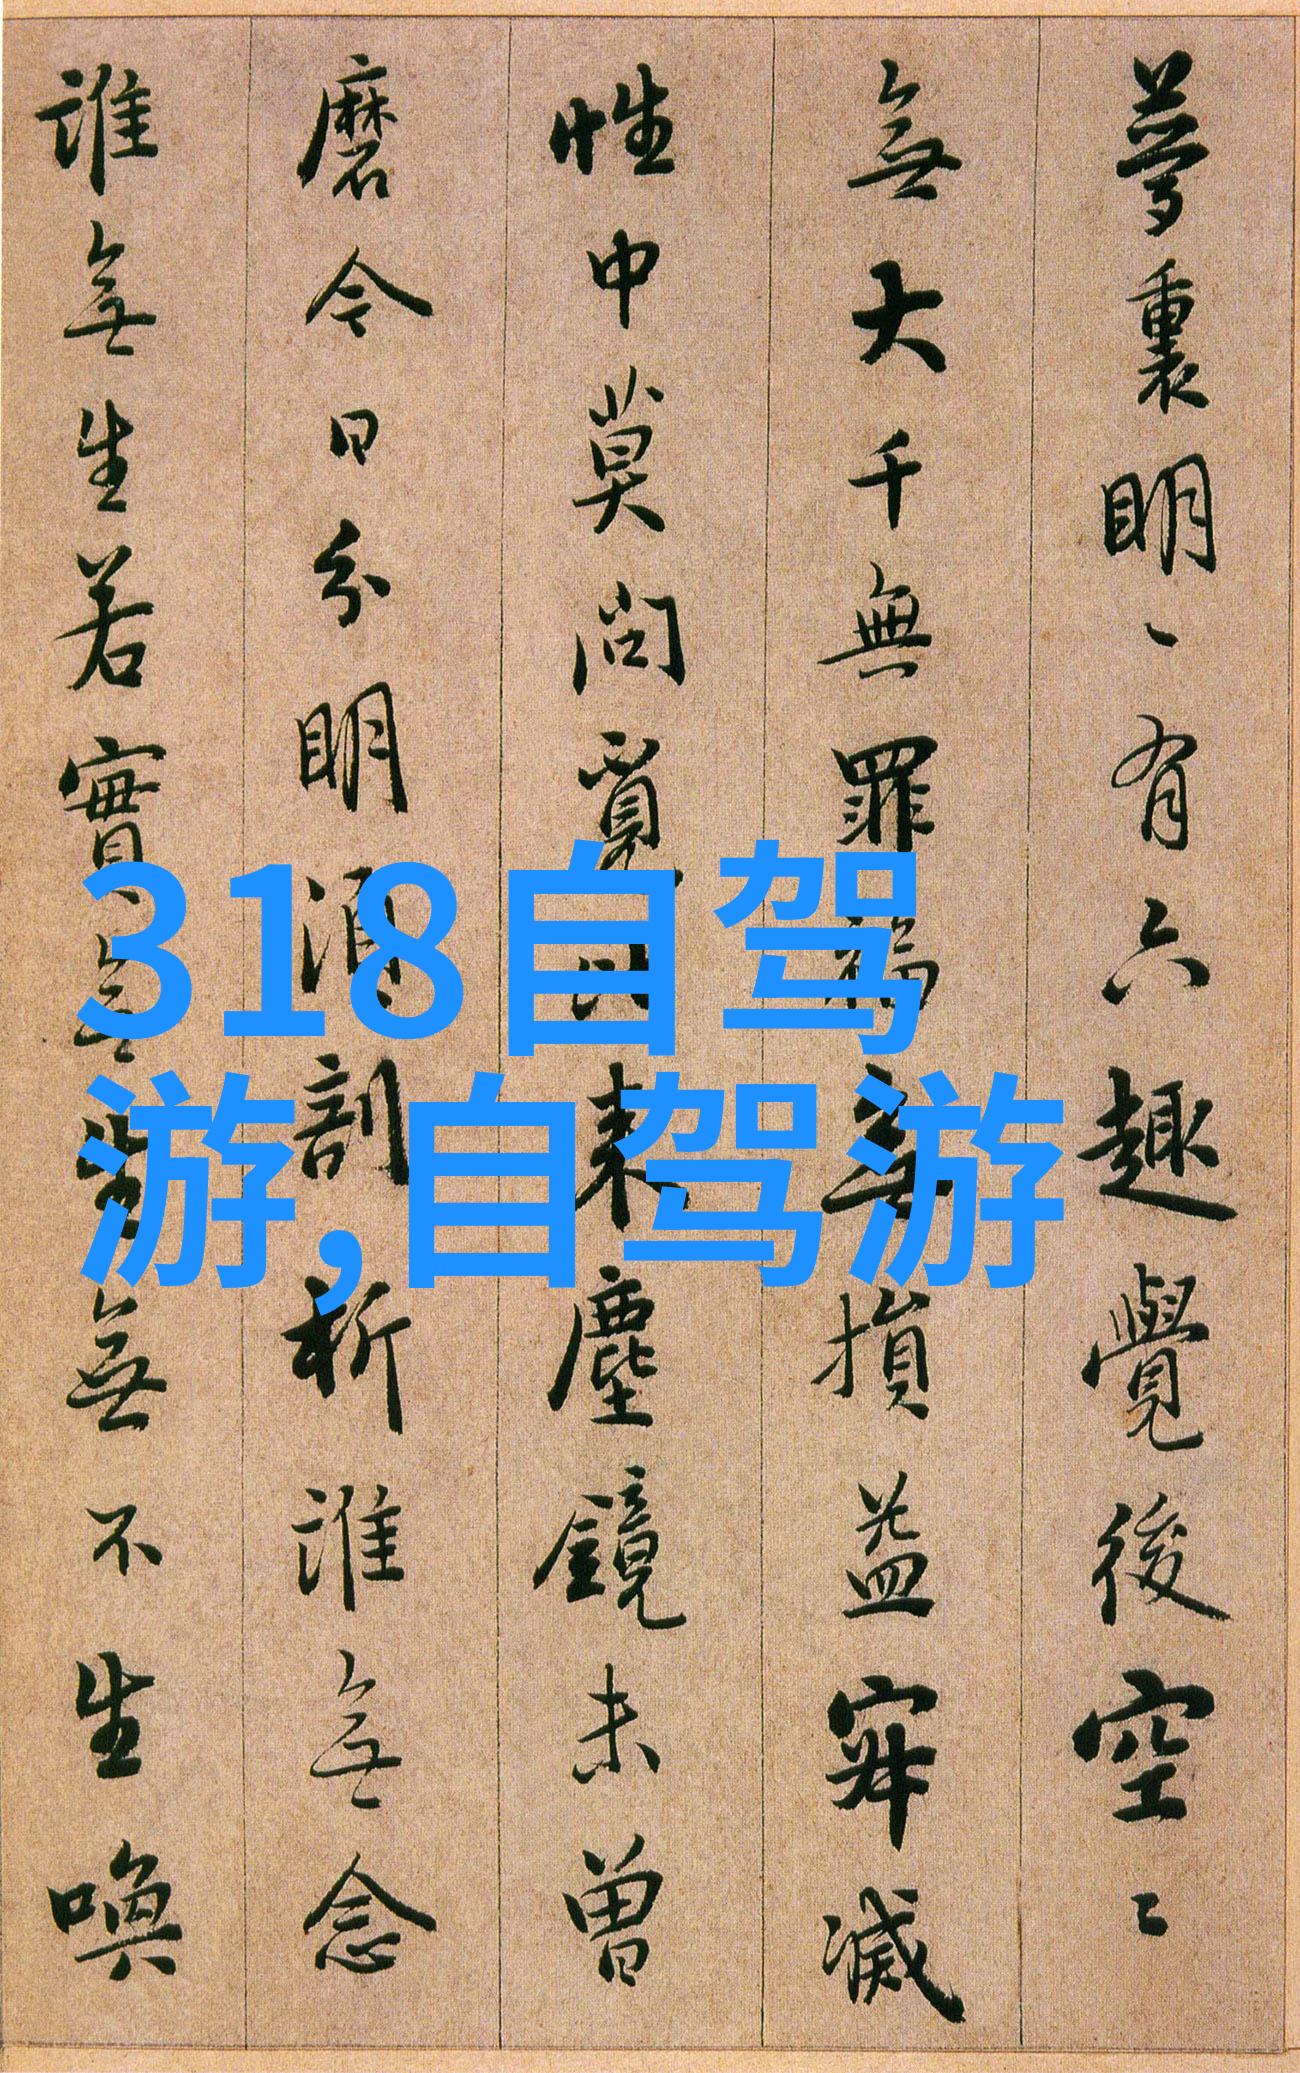 夢裏明丶有六趣覺後空〻
無大千無罪福無損益寂滅
性中莫問覓比來塵鏡未曾
磨今日分明須剖析誰無念
誰無生若實無生無不生喚
318自驾
游,自驾游